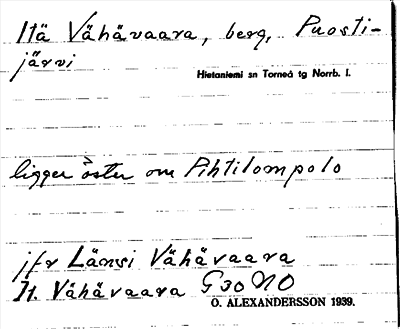 Itä Vähävaara, berg, Puosti-
järvi
Hietaniemi sn Torneå tg Norrb. l.
ligger öster om Pihtilompolo
jfr Länsi Vähävaara
It. Vähävaara G30 NO
O. ALEXANDERSSON 1939.